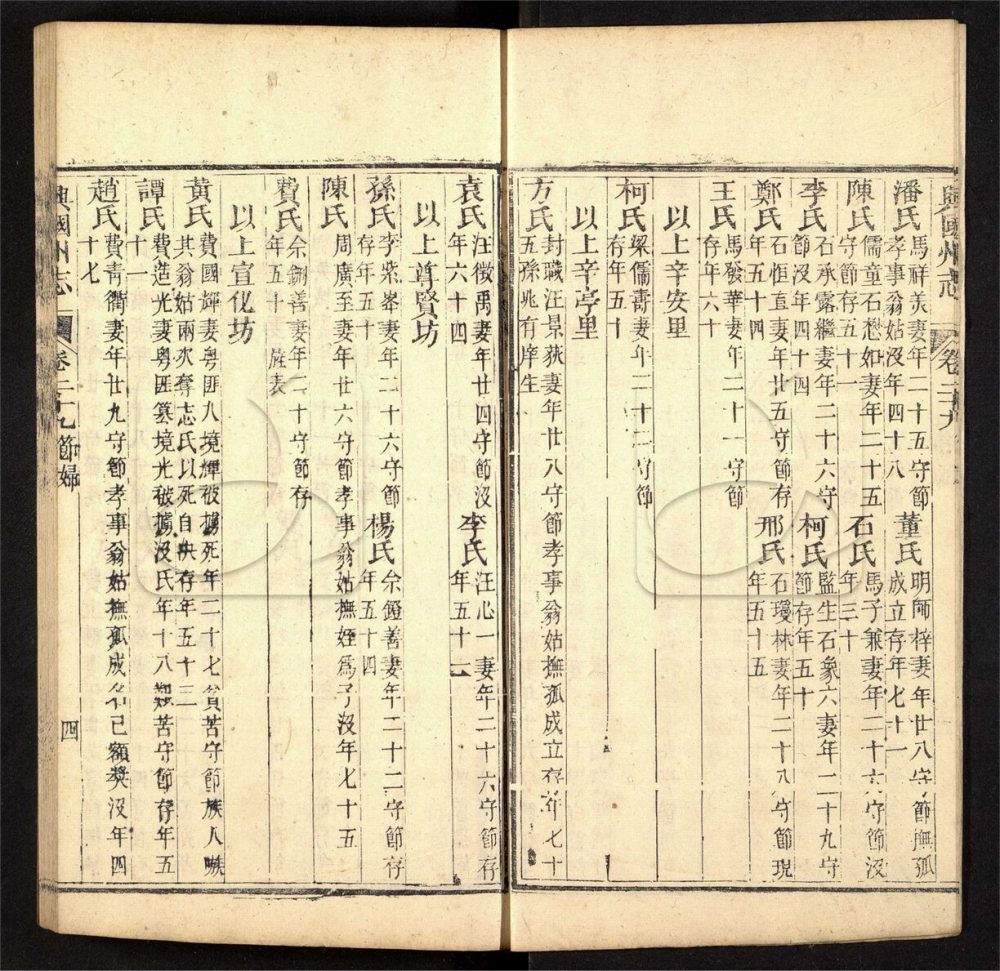 興國州志 卷二十九
潘氏 馬祥美妻年二十五守節
孝事翁姑沒年四十八
董氏 明師梓妻年廿八守節撫孤
成立存年七十一
陳氏 儒童石懋如妻年二十五
守節存五十一
石氏 馬子兼妻年二十六守節沒
年三十
李氏 石承露繼妻年二十六守
節沒年四十四
柯氏 監生石象六妻年二十九守
節存年五十
鄭氏 石恒直妻年廿五守節存
年五十四
邢氏 石瓊林妻年二十八守節現
年五十五
王氏 馬發華妻年二十一守節
存年六十
以上辛安里
柯氏 梁儒壽妻年二十二守節
存年五十
以上辛亭里
方氏 封職汪景荻妻年廿八守節孝事翁姑撫孤成立存年七十
五孫兆有庠生
袁氏 汪徵禹妻年廿四守節沒
年六十四
李氏 汪心一妻年二十六守節存
年五十二
以上尊賢坊
孫氏 李崇峯妻年二十六守節
存年五十
楊氏 余鐙善妻年二十二守節存
年五十四
陳氏 周廣至妻年廿六守節孝事翁姑撫姪爲子沒年七十五
費氏 余鍘善妻年二十守節存
年五十 旌表
以上宣化坊
黃氏 費國輝妻粵匪入境輝被擄死年二十七貧苦守節族人嗾
其翁姑兩次奪志氏以死自抉存年五十三
譚氏 費造光妻粵匪竄境光被擄沒氏年十八艱苦守節存年五
十一
趙氏 費靑衢妻年廿九守節孝事翁姑撫孤成名已額獎沒年四
十七
興國州志 卷二十九節婦 四